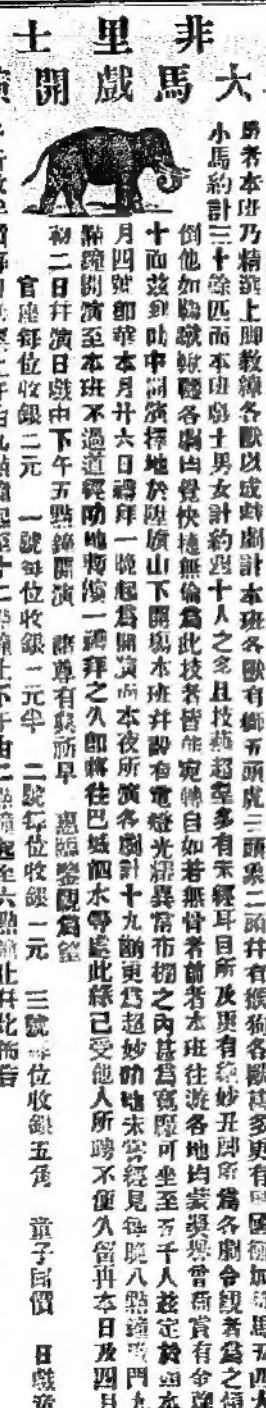 非里士
大馬戲開演
者本班乃精選上脚教練各獸以成戲劇計本班各獸有獅五頭虎三頭象二頭并有猴狗各獸甚多更有國馬五四大
小馬約計三十餘匹而本班戲士男女計約四十人之多且技藝超羣多有未經耳目所及更有絕妙丑脚所爲各劇令觀者爲之傾
倒他如各劇均覺快捷無倫爲此技者皆能宛轉自如若無骨者前者本班往游各地均蒙奬譽曾荷賞有金牌
十面茲到叻中開演擇地於陞旗山下開塲本班并設有電燈光耀異常布棚之內甚爲寬廠可坐至五千人茲定於西本
月四號卽華本月廿六日禮拜一晚起爲開演而本夜所演各劇計十九齣更爲超妙叻地未甞經見每晚八點鐘開門九
點鐘開演至本班不過道經叻地暫演一禮拜之久卽將往巴城泗水等處此緣已受他人所聘不便久留再本日及四月
初二日并演日戲由下午五點鐘開演 諸尊有祈早 惠臨鑒觀爲望
官座每位收銀三元 一號每位收銀二元半 二號每位收銀一元 三號每位收銀五角 童子同價 日戲
午由九點鐘起至十二點鐘止下午由二點鐘起至六點鐘止并此佈告